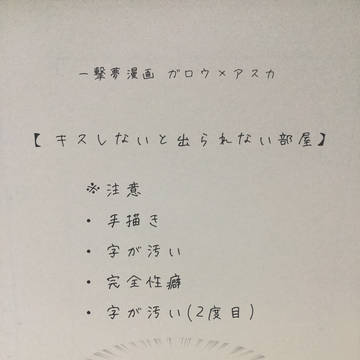 一撃夢漫画 ガロウ×アスカ
【キスしないと出られない部屋】
※注意
・手描き
・字が汚い
・完全性癖
・字が汚い(2度目)